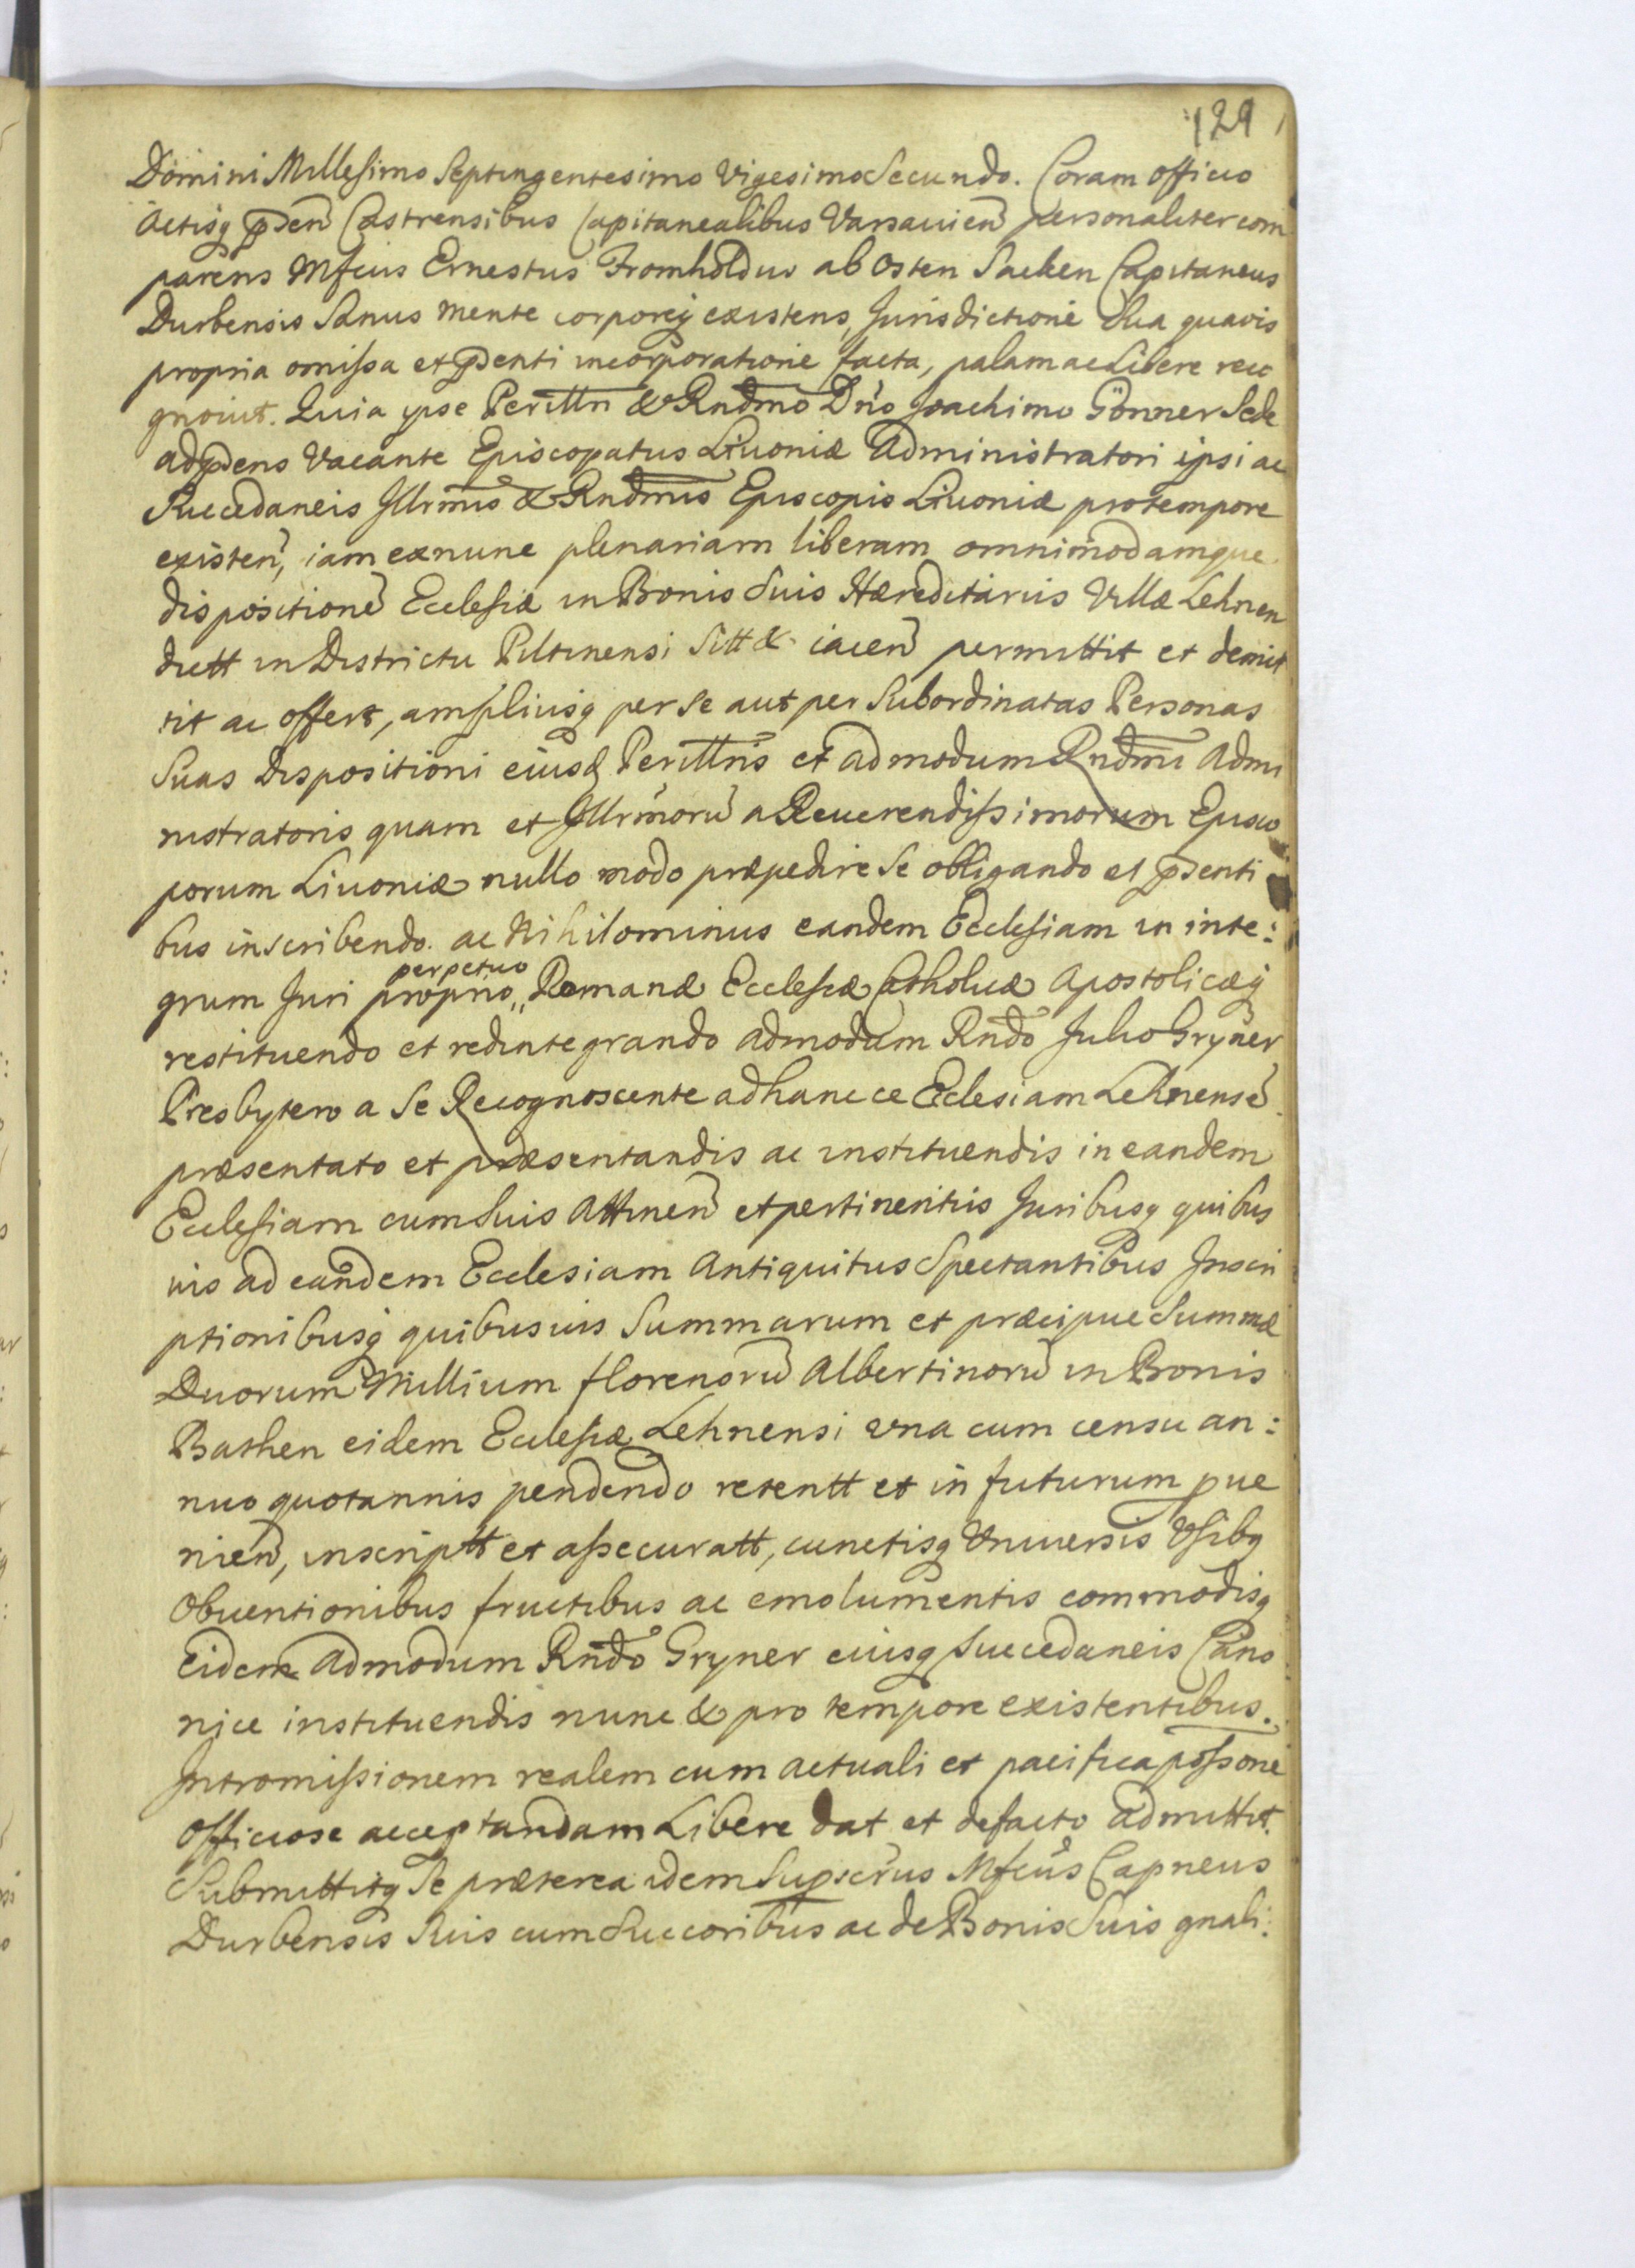 129
Domini Millesimo Septingentesimo Vigesimo Secundo. Coram officio
Actisq pden Castrensibus Capitanealibus Varsavien personaliter com
parens Mfcus Ernestus Fromholdus ab Osten Sacken Capitaneus
Durbensis Sanus mente corporeq existens, Jurisdictione Sua quavis
propria omissa et pdenti incorporatione facta, palam ac Libere reco
gnovit. Quia ipse Perilltri & Rndmo Dno Joachimo Gönner Sede
adpdens Vacante Episcopatus Livoniæ Administratori ipsi ac
Succedaneis Illrmis & Rndmis Episcopis Livoniæ pro tempore
existen, iam ex nunc plenariam liberam omnimodamque
dispositione Ecclesiæ in Bonis Suis Hæreditariis Villæ Lehnen
dictt in Districtu Piltinensi Sitt & iacen permittit et demit
tit ac offert, ampliusq per se aut per Subordinatas Personas
Suas Dispositioni eiusd Perilltris et admodum Rndmi Admi
nistratoris quam et Illrmoru a Reverendissimorum Episco
porum Livoniæ nullo modo præpedire Se obligando et pdenti
bus inscribendo. ac Nihilominus eandem Ecclesiam in inte:
grum Juri proprio,, perpetuo Romanæ Ecclesiæ Catholicæ Apostolicæq
restituendo et redintegrando admodum Rndo Julio Gryner
Presbytero a Se Recognoscente ad hancce Eclesiam Lehnense
præsentato et præsentandis ac instituendis in eandem
Ecclesiam cum Suis Attinen et pertinentiis Juribusq quibus
vis ad eandem Ecclesiam Antiquitus Spectantibus Inscri
ptionibusq quibusvis Summarum et præcipue Summæ
Duorum Millium florenoru Albertinoru in Bonis
Bathen eidem Ecclesiæ Lehnensi una cum censu an:
nuo quotannis pendendo retentt et in futurum pve
nien, inscriptt et assecuratt, cunctisq Universis Usibq
Obventionibus fructibus ac emolumentis commodisq
Eidem Admodum Rndo Gryner eiusq Succedaneis Cano
nice instituendis nunc & pro tempore existentibus.
Intromissionem realem cum actuali et pacifica possone
Officiose acceptandam Libere dat et defacto admittit.
Submittitq Se præterea idem Supscrus Mfcus Capneus
Durbensis Suis cum Succoribus ac de Bonis Suis gnali: